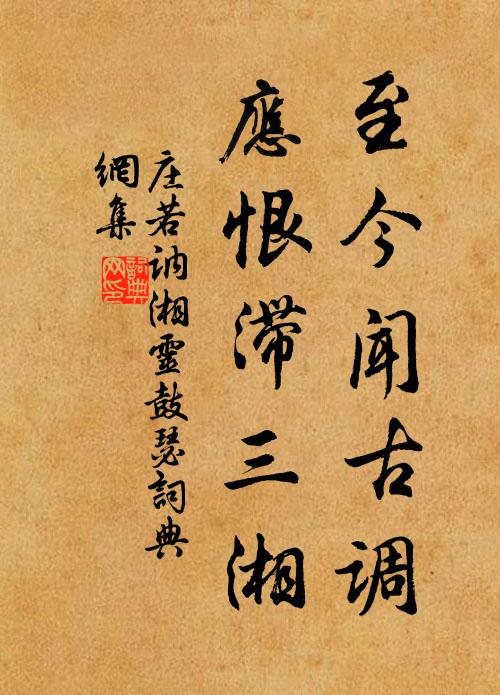 至今闻古调
應恨滯三湘
庄若讷湘靈鼓瑟詞典
網集
詞典
网印